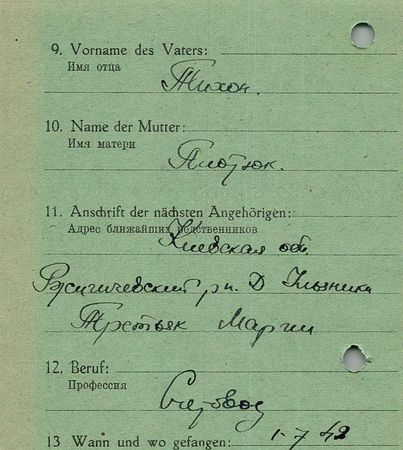 9. Vorname des Vaters:
Имя отца
Тихон.
10. Name der Mutter:
Имя матери
Плотюк.
11. Anschrift der nächsten Angehörigen:
Адрес ближайших родственников
Киевская обл.
рн. Д
Третьяк Марии
12. Beruf:
Профессия
Счетовод
13 Wann und wo gefangen: 1-7 42